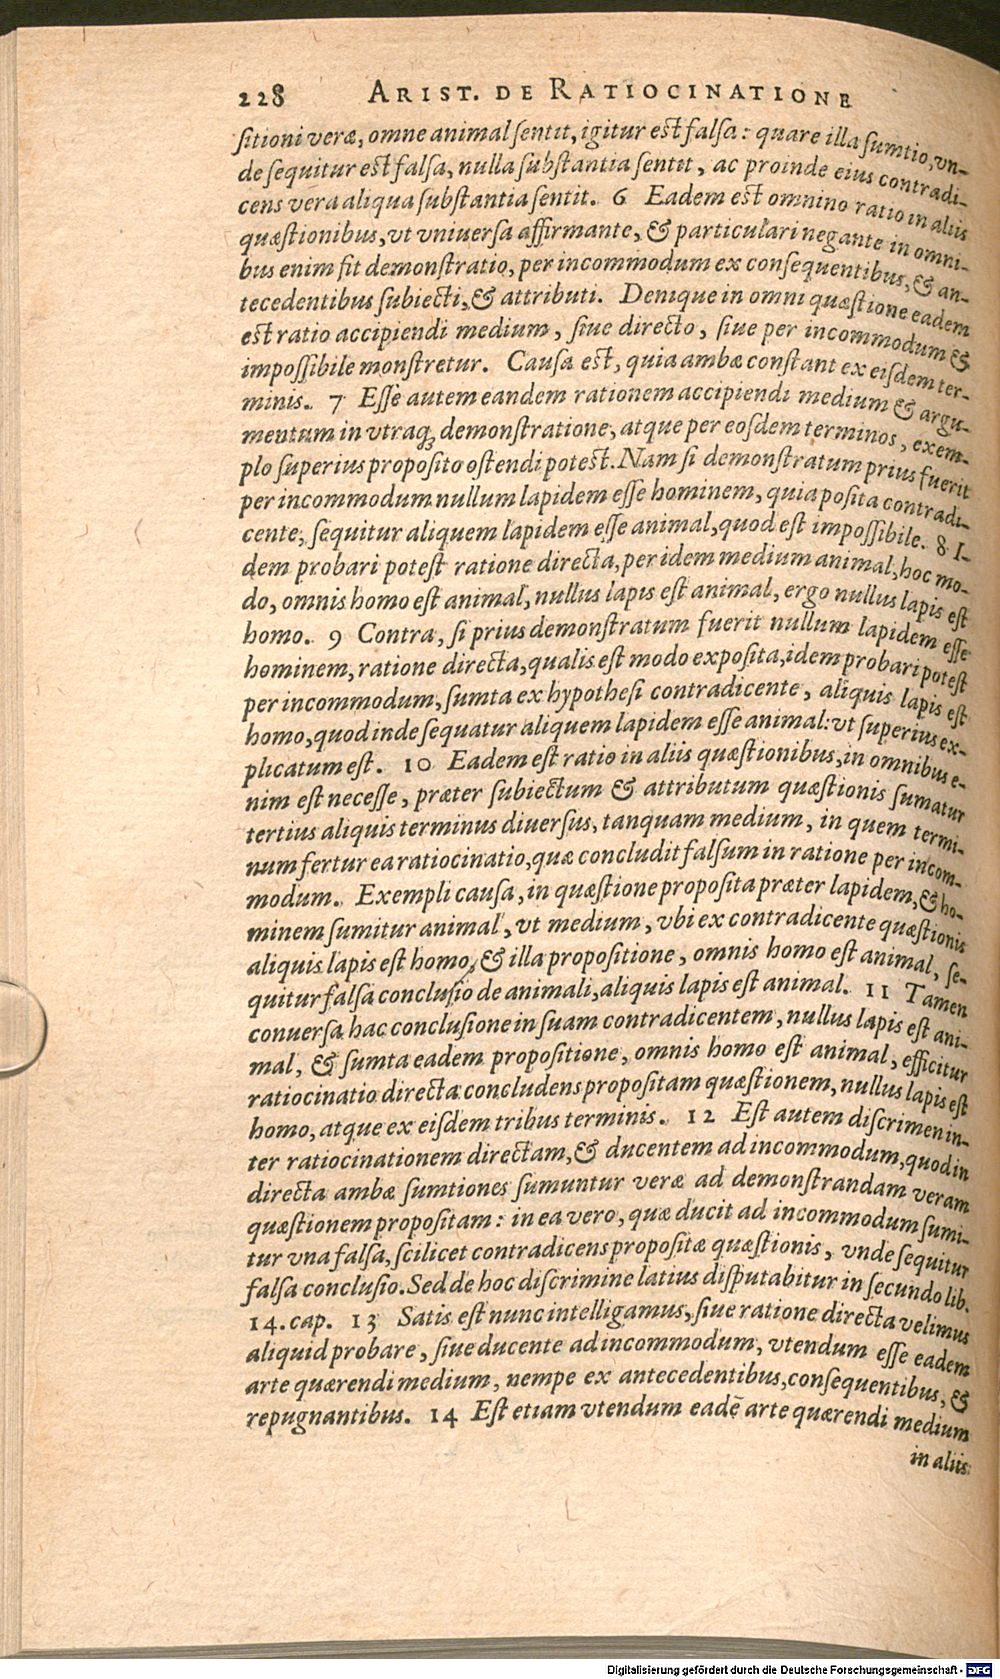 228 ARIST. DE RATIOCINATIONE
ſitioni veræ, omne animal ſentit, igitur est falſa: quare illa ſumtio, vn-
de ſequitur est falſa, nulla ſubſtantia ſentit, ac proinde eius contradi-
cens vera aliqua ſubſtantia ſentit. 6 Eadem est omnino ratio in aliis
quæſtionibus, vt vniuerſa affirmante, & particulari negante in omni-
bus enim fit demonſtratio, per incommodum ex conſequentibus, & an-
tecedentibus ſubiecti, & attributi. Denique in omni quæſtione eadem
est ratio accipiendi medium, ſiue directo, ſiue per incommodum &
impoſſibile monſtretur. Cauſa est, quia ambæ conſtant ex eiſdem ter-
minis. 7 Eſſe autem eandem rationem accipiendi medium & argu-
mentum in vtraq; demonſtratione, atque per eoſdem terminos, exem-
plo ſuperius propoſito oſtendi potest. Nam ſi demonſtratum prius fuerit
per incommodum nullum lapidem eſſe hominem, quia poſita contradi-
cente, ſequitur aliquem lapidem eſſe animal, quod eſt impoſſibile. 8 I-
dem probari poteſt ratione directa, per idem medium animal, hoc mo-
do, omnis homo eſt animal, nullus lapis eſt animal, ergo nullus lapis eſt
homo. 9 Contra, ſi prius demonſtratum fuerit nullum lapidem eſſe
hominem, ratione directa, qualis eſt modo expoſita, idem probari poteſt
per incommodum, ſumta ex hypotheſi contradicente, aliquis lapis eſt
homo, quod inde ſequatur aliquem lapidem eſſe animal: vt ſuperius ex-
plicatum eſt. 10 Eadem eſt ratio in aliis quæſtionibus, in omnibus e-
nim eſt neceſſe, præter ſubiectum & attributum quæſtionis ſumatur
tertius aliquis terminus diuerſus, tanquam medium, in quem termi-
num fertur ea ratiocinatio, quæ concludit falſum in ratione per incom-
modum. Exempli cauſa, in quæſtione propoſita præter lapidem, & ho-
minem ſumitur animal, vt medium, vbi ex contradicente quæſtionis
aliquis lapis eſt homo, & illa propoſitione, omnis homo eſt animal, ſe-
quitur falſa concluſio de animali, aliquis lapis eſt animal. 11 Tamen
conuerſa hac concluſione in ſuam contradicentem, nullus lapis eſt ani-
mal, & ſumta eadem propoſitione, omnis homo eſt animal, efficitur
ratiocinatio directa concludens propoſitam quæſtionem, nullus lapis eſt
homo, atque ex eiſdem tribus terminis. 12 Eſt autem diſcrimen in-
ter ratiocinationem directam, & ducentem ad incommodum, quod in
directa ambæ ſumtiones ſumuntur veræ ad demonſtrandam veram
quæſtionem propoſitam: in ea vero, quæ ducit ad incommodum ſumi-
tur vna falſa, ſcilicet contradicens propoſitæ quæſtionis, vnde ſequitur
falſa concluſio. Sed de hoc diſcrimine latius diſputabitur in ſecundo lib.
14. cap. 13 Satis eſt nunc intelligamus, ſiue ratione directa velimus
aliquid probare, ſiue ducente ad incommodum, vtendum eſſe eadem
arte quærendi medium, nempe ex antecedentibus, conſequentibus, &
repugnantibus. 14 Eſt etiam vtendum eadē arte quærendi medium
in aliis
Digitalisierung gefördert durch die Deutsche Forschungsgemeinschaft - DFG